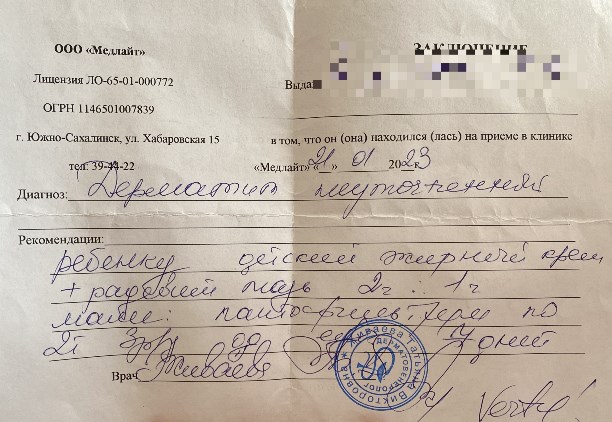 ООО «Медлайт»
ЗАКЛЮЧЕНИЕ
Лицензия ЛО-65-01-000772
Выда
ОГРН 1146501007839
г. Южно-Сахалинск, ул. Хабаровская 15
в том, что он (она) находился (лась) на приеме в клинике
тел: 39-44-22
«Медлайт» «21» 01 2023
Диагноз: Дерматит неуточненный
Рекомендации:
ребенку детский жирный крем
+ 2г : 1г
маме: по
2т 3р/ дней
Врач Живаева
Живаева Татьяна Викторовна
ДЕРМАТОВЕНЕРОЛОГ
Verte!